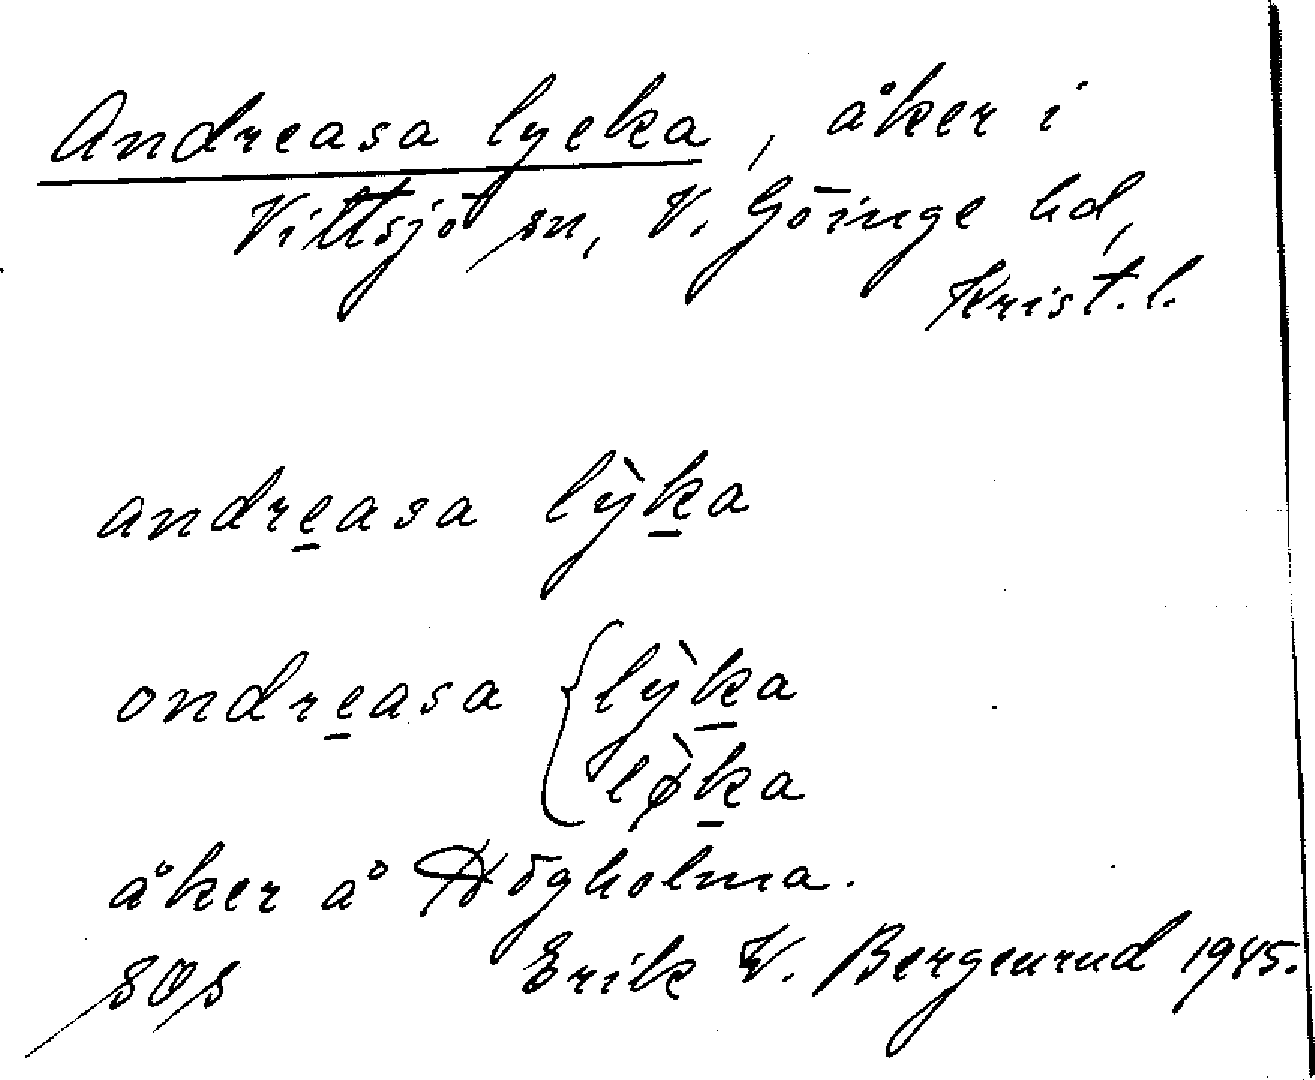 Andreasa lycka, åker i
Vittsjö sn, V. Göinge hd,
Krist. l.
andrea̲sa lỳk̲a
ondrea̲sa { lỳk̲a
lø̀k̲a
åker å Högholma.
SOS Erik W. Bergenrud 1945.